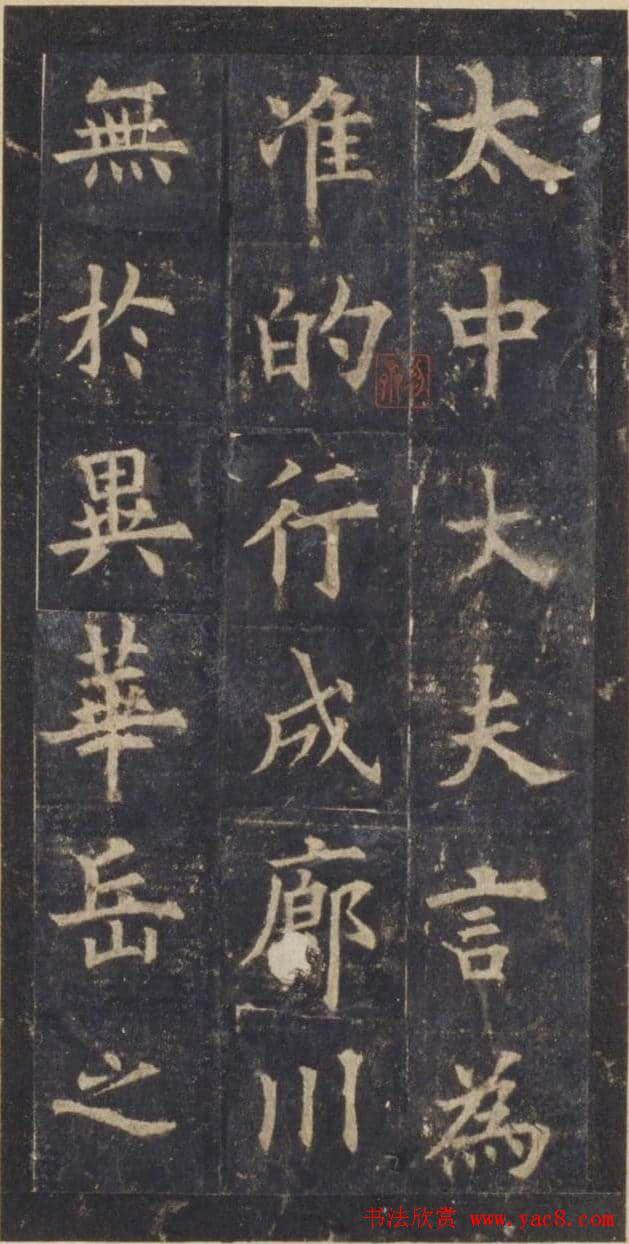 太中大夫言為
准的行成廊川
無於異華岳之
书法欣赏 www.yac8.com